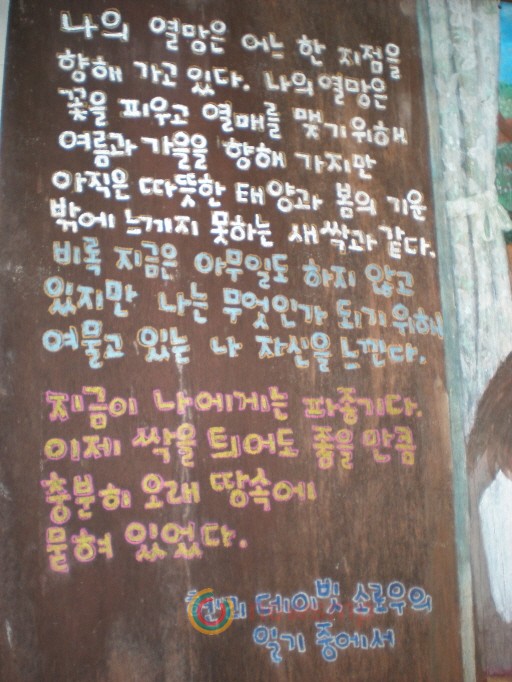 나의 열망은 어느 한 지점을
향해 가고 있다. 나의 열망은
꽃을 피우고 열매를 맺기위해
여름과 가을을 향해 가지만
아직은 따뜻한 태양과 봄의 기운
밖에 느끼지 못하는 새싹과 같다.
비록 지금은 아무일도 하지 않고
있지만 나는 무엇인가 되기위해
여물고 있는 나 자신을 느낀다.
지금이 나에게는 파종기다.
이제 싹을 틔어도 좋을 만큼
충분히 오래 땅속에
묻혀 있었다.
헨리 데이빗 소로우의
일기 중에서